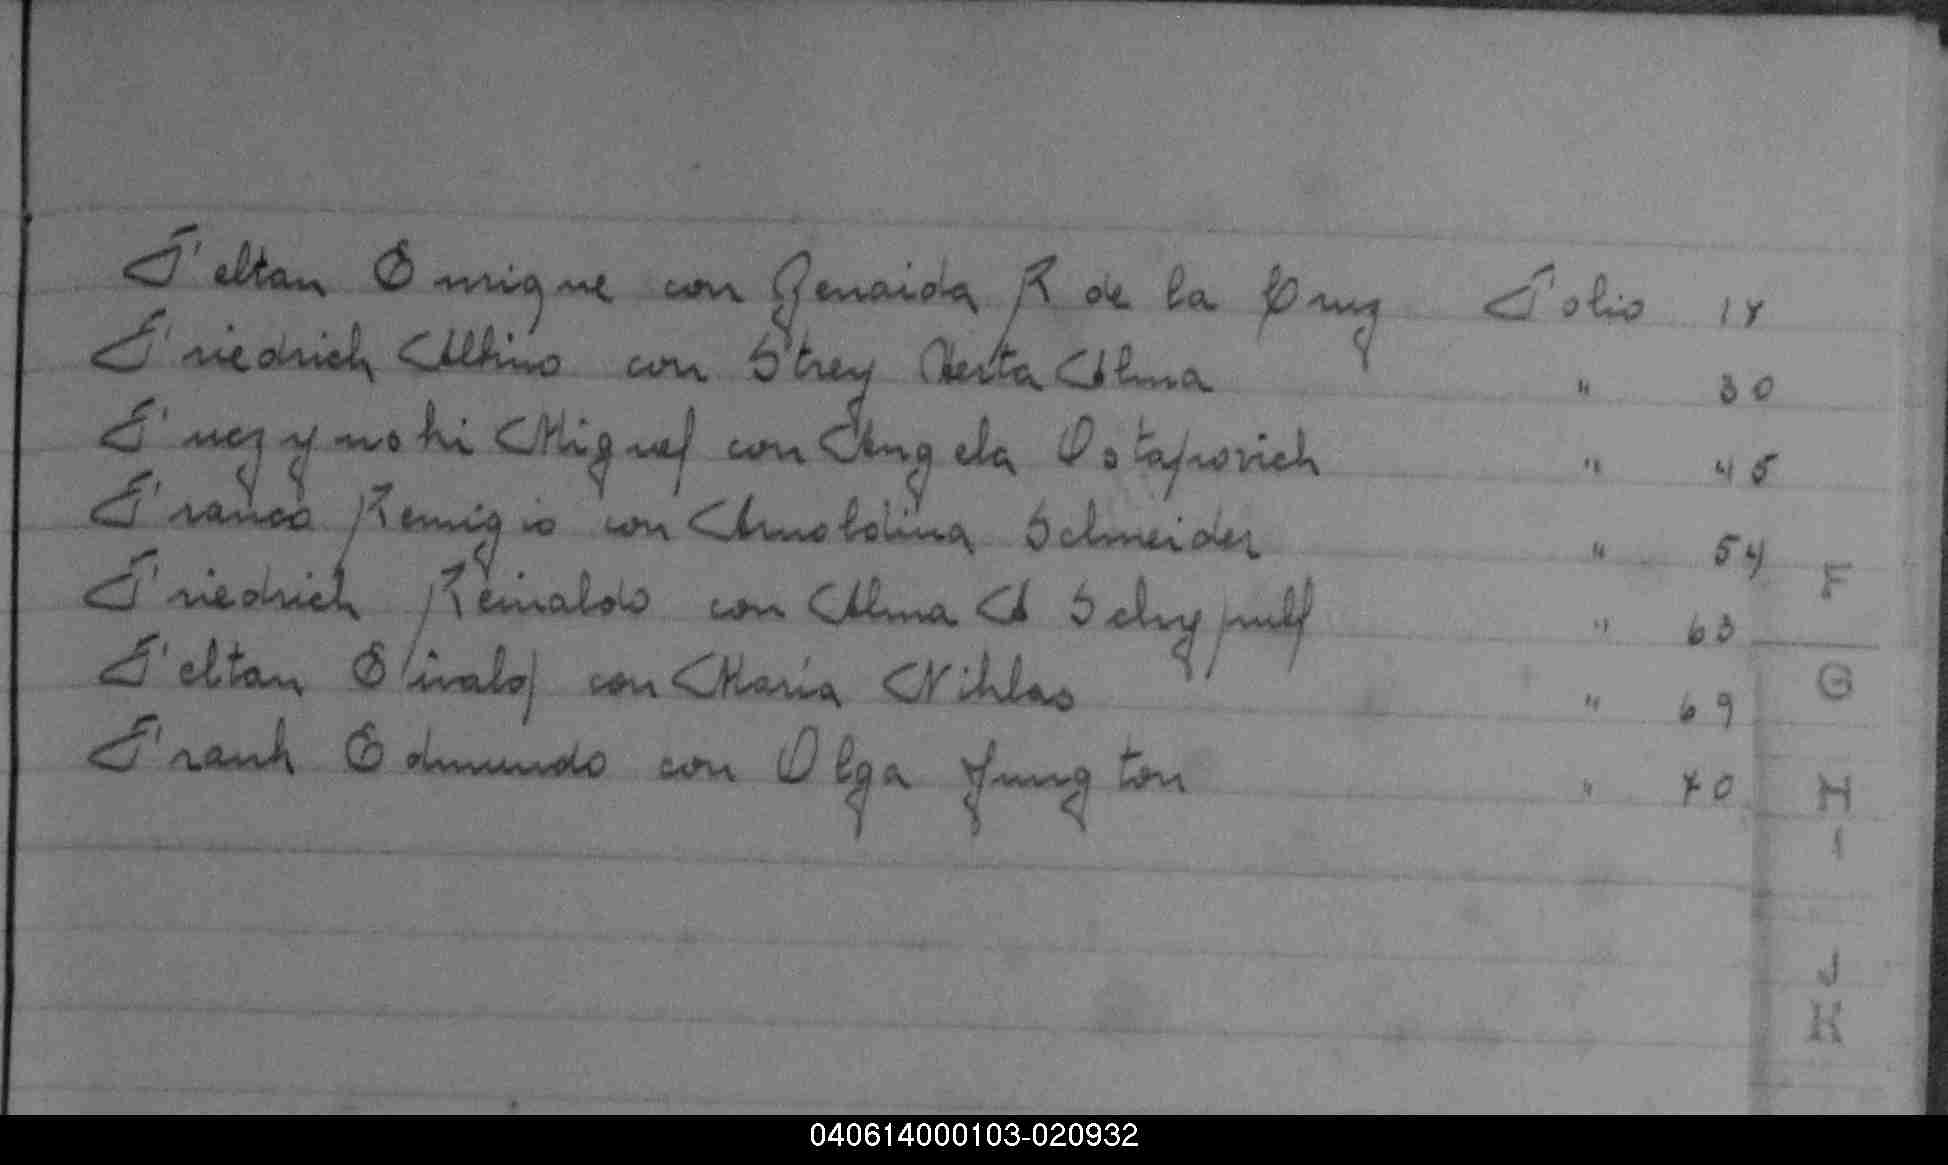 Feltan Enrique con Zenaida R de la Cruz Folio 17
Friedrich Albino con Strey Herta Alma " 30
Fuczynski Miguel con Angela Ostapovich " 45
Franco Remigio con Arnoldina Schneider " 54
Friedrich Reinaldo con Alma A " 63
Feltan con Maria Niklas " 69
Frank Edmundo con Olga Jungton " 70
F
G
H
I
J
K
040614000103-020932